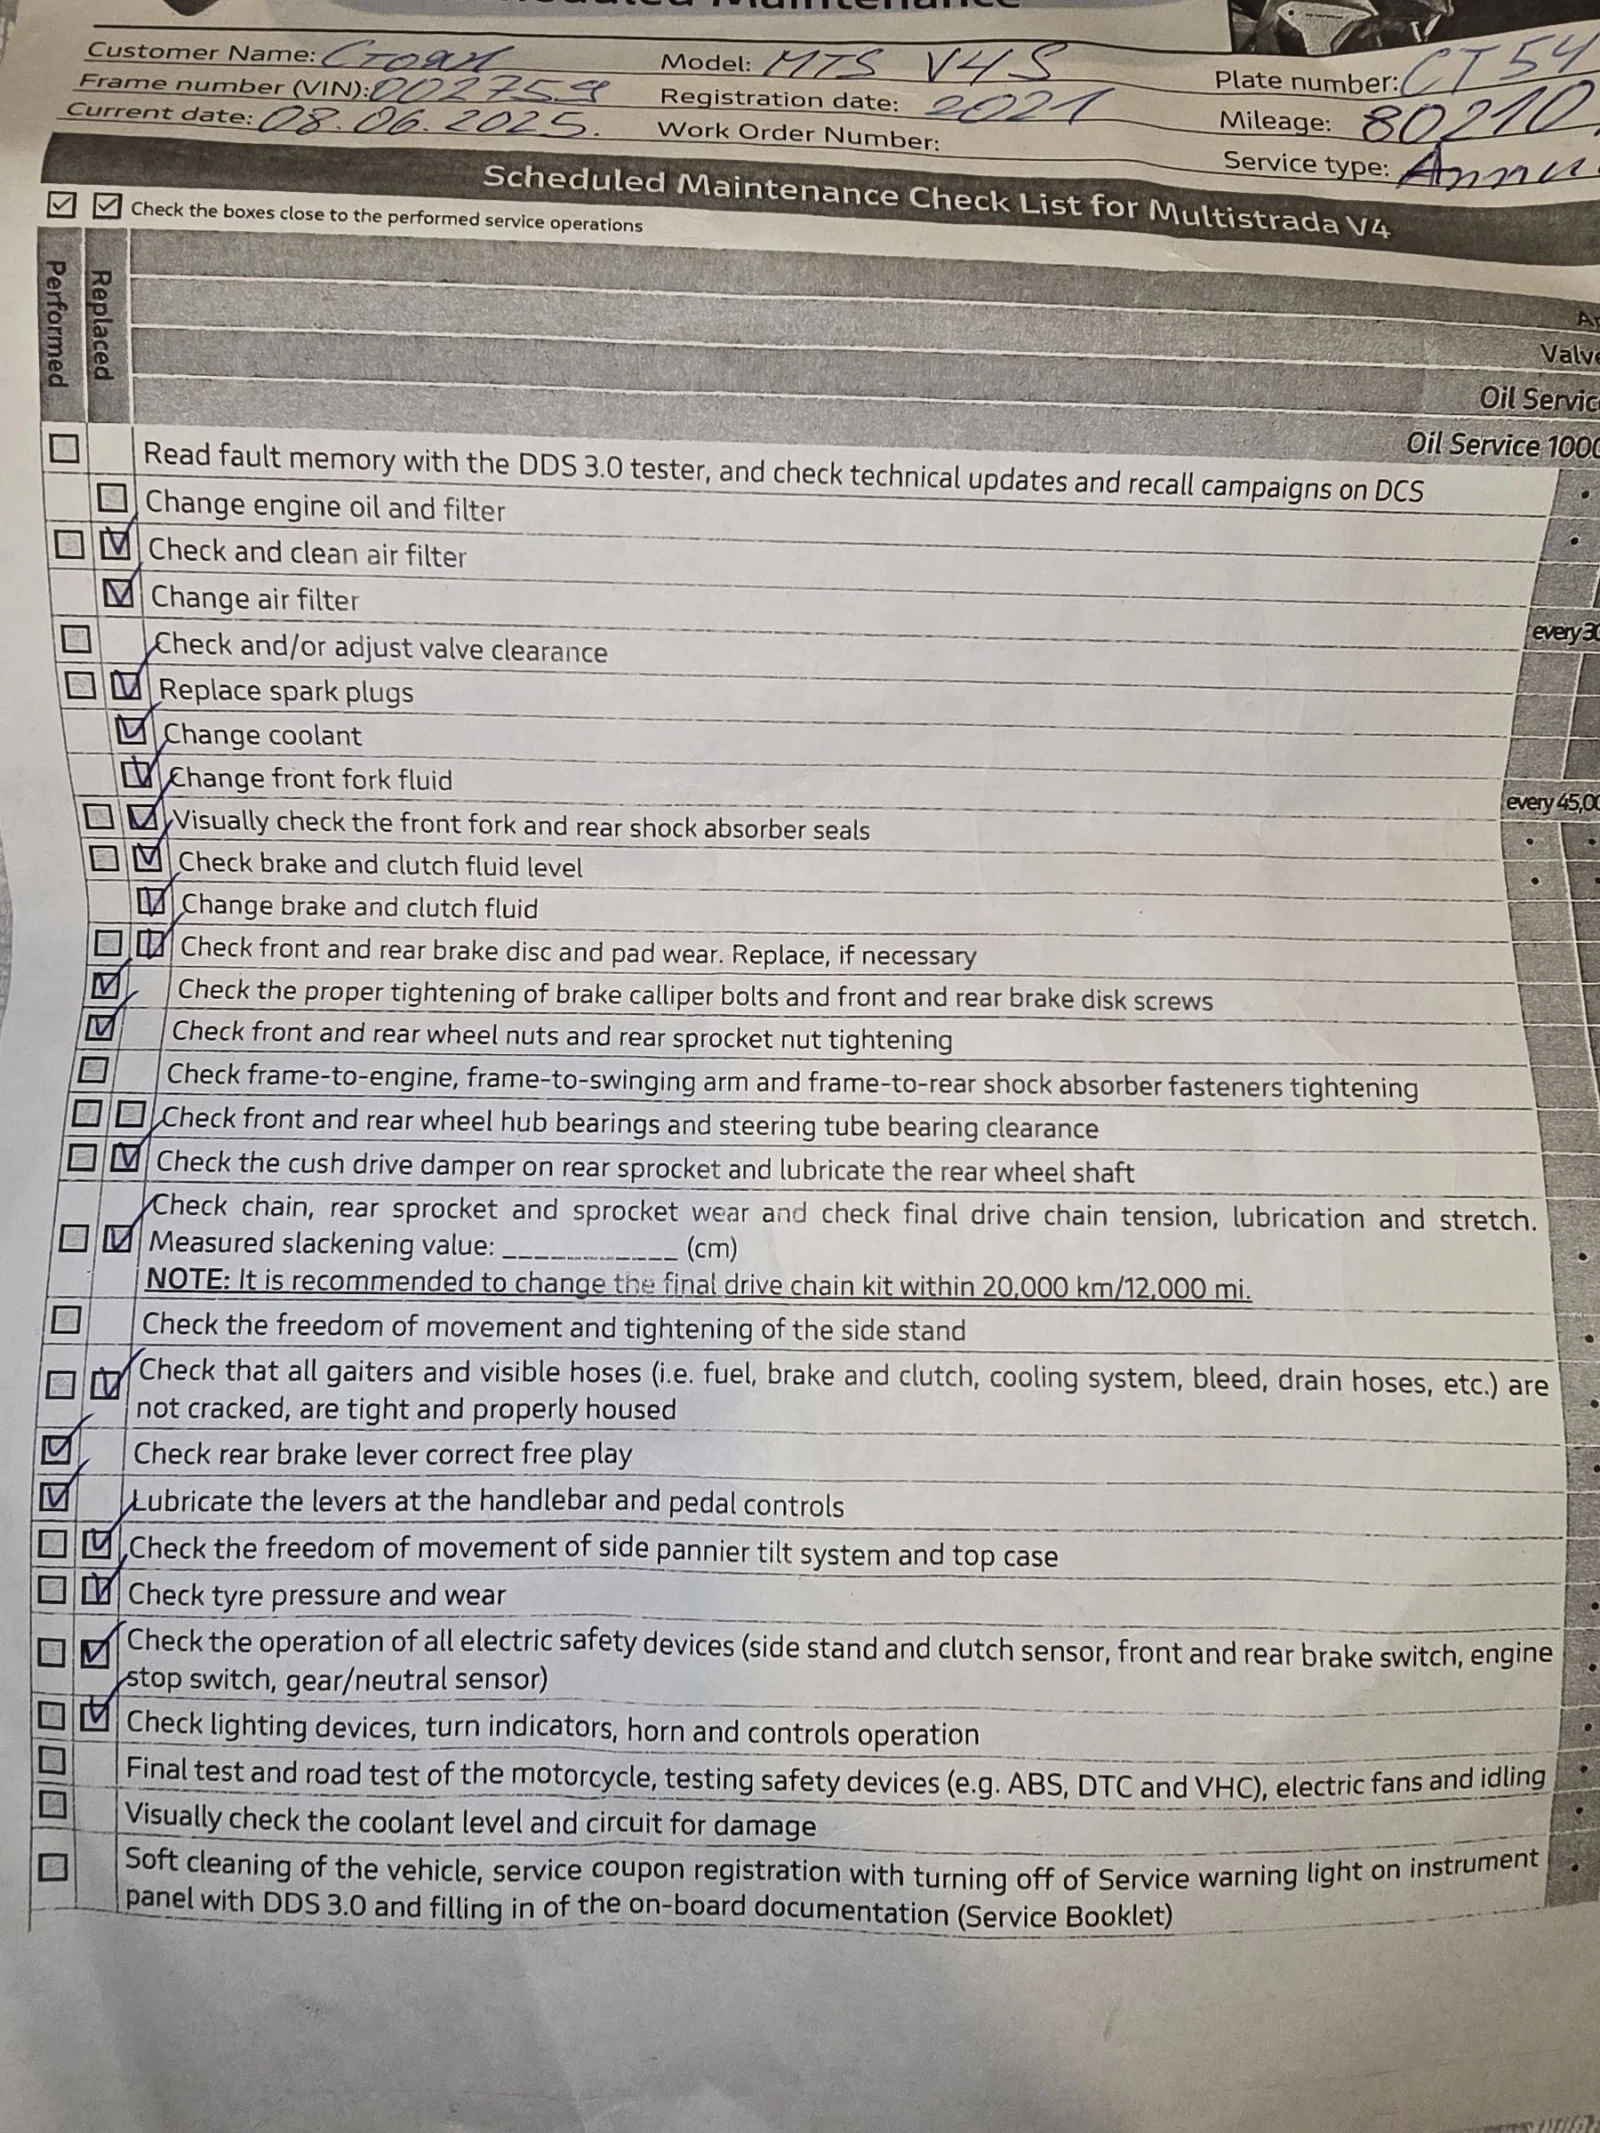 Customer Name: Стоян
Model: MTS V4S
Plate number: CT54
Frame number (VIN): 002759
Registration date: 2021
Mileage: 80210
Current date: 08.06.2025.
Work Order Number:
Service type: Annu
Scheduled Maintenance Check List for Multistrada V4
Check the boxes close to the performed service operations
Performed
Replaced
Valve
Oil Service
Oil Service 1000
Read fault memory with the DDS 3.0 tester, and check technical updates and recall campaigns on DCS
Change engine oil and filter
Check and clean air filter
Change air filter
every 30
Check and/or adjust valve clearance
Replace spark plugs
Change coolant
Change front fork fluid
every 45,00
Visually check the front fork and rear shock absorber seals
Check brake and clutch fluid level
Change brake and clutch fluid
Check front and rear brake disc and pad wear. Replace, if necessary
Check the proper tightening of brake calliper bolts and front and rear brake disk screws
Check front and rear wheel nuts and rear sprocket nut tightening
Check frame-to-engine, frame-to-swinging arm and frame-to-rear shock absorber fasteners tightening
Check front and rear wheel hub bearings and steering tube bearing clearance
Check the cush drive damper on rear sprocket and lubricate the rear wheel shaft
Check chain, rear sprocket and sprocket wear and check final drive chain tension, lubrication and stretch.
Measured slackening value: ____________ (cm)
NOTE: It is recommended to change the final drive chain kit within 20,000 km/12,000 mi.
Check the freedom of movement and tightening of the side stand
Check that all gaiters and visible hoses (i.e. fuel, brake and clutch, cooling system, bleed, drain hoses, etc.) are
not cracked, are tight and properly housed
Check rear brake lever correct free play
Lubricate the levers at the handlebar and pedal controls
Check the freedom of movement of side pannier tilt system and top case
Check tyre pressure and wear
Check the operation of all electric safety devices (side stand and clutch sensor, front and rear brake switch, engine
stop switch, gear/neutral sensor)
Check lighting devices, turn indicators, horn and controls operation
Final test and road test of the motorcycle, testing safety devices (e.g. ABS, DTC and VHC), electric fans and idling
Visually check the coolant level and circuit for damage
Soft cleaning of the vehicle, service coupon registration with turning off of Service warning light on instrument
panel with DDS 3.0 and filling in of the on-board documentation (Service Booklet)